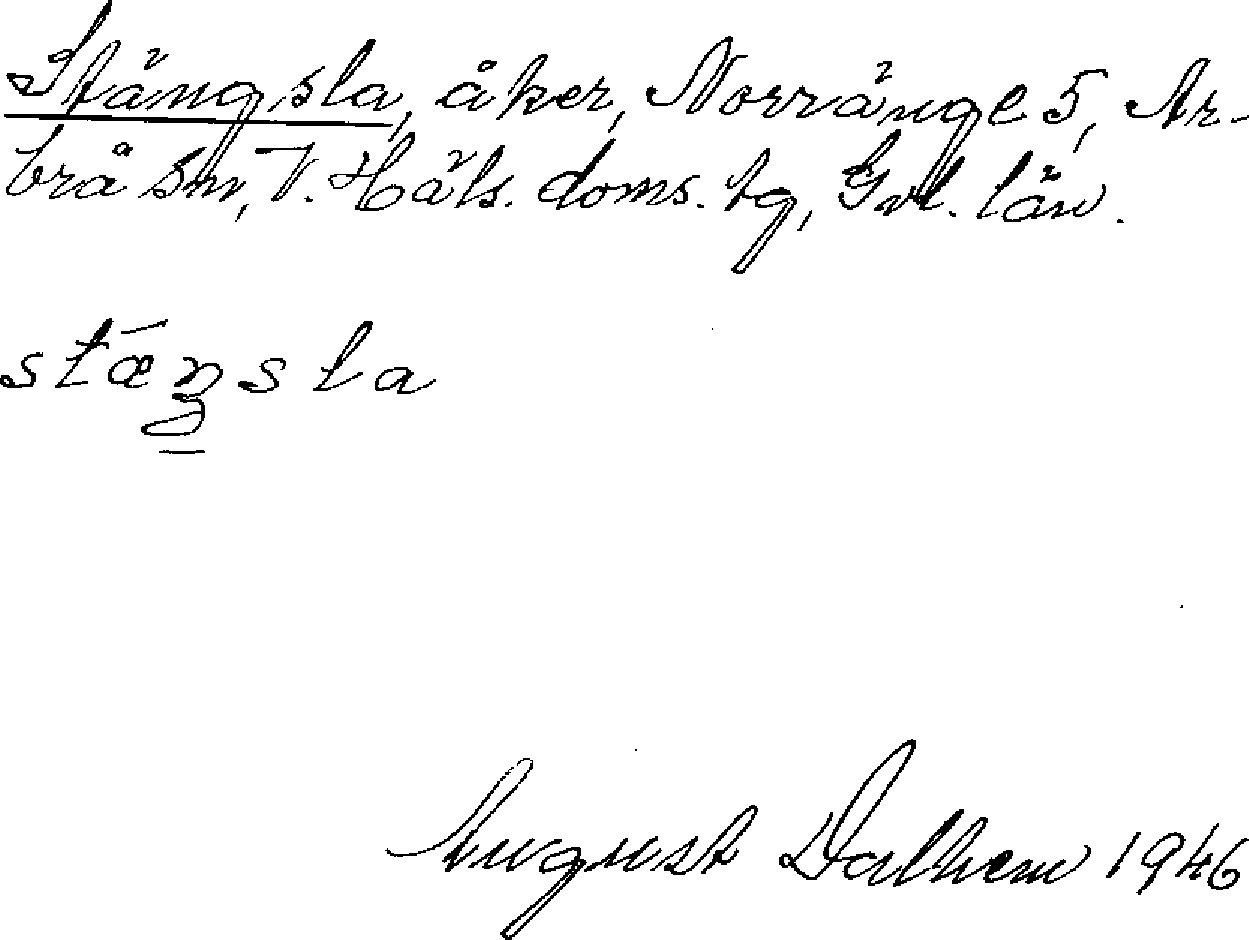 Stängsla, åker, Norränge 5, Ar-
brå sn, V. Häls. doms. tg, Gvl. län.
stæŋsla
August Dalhem 1946